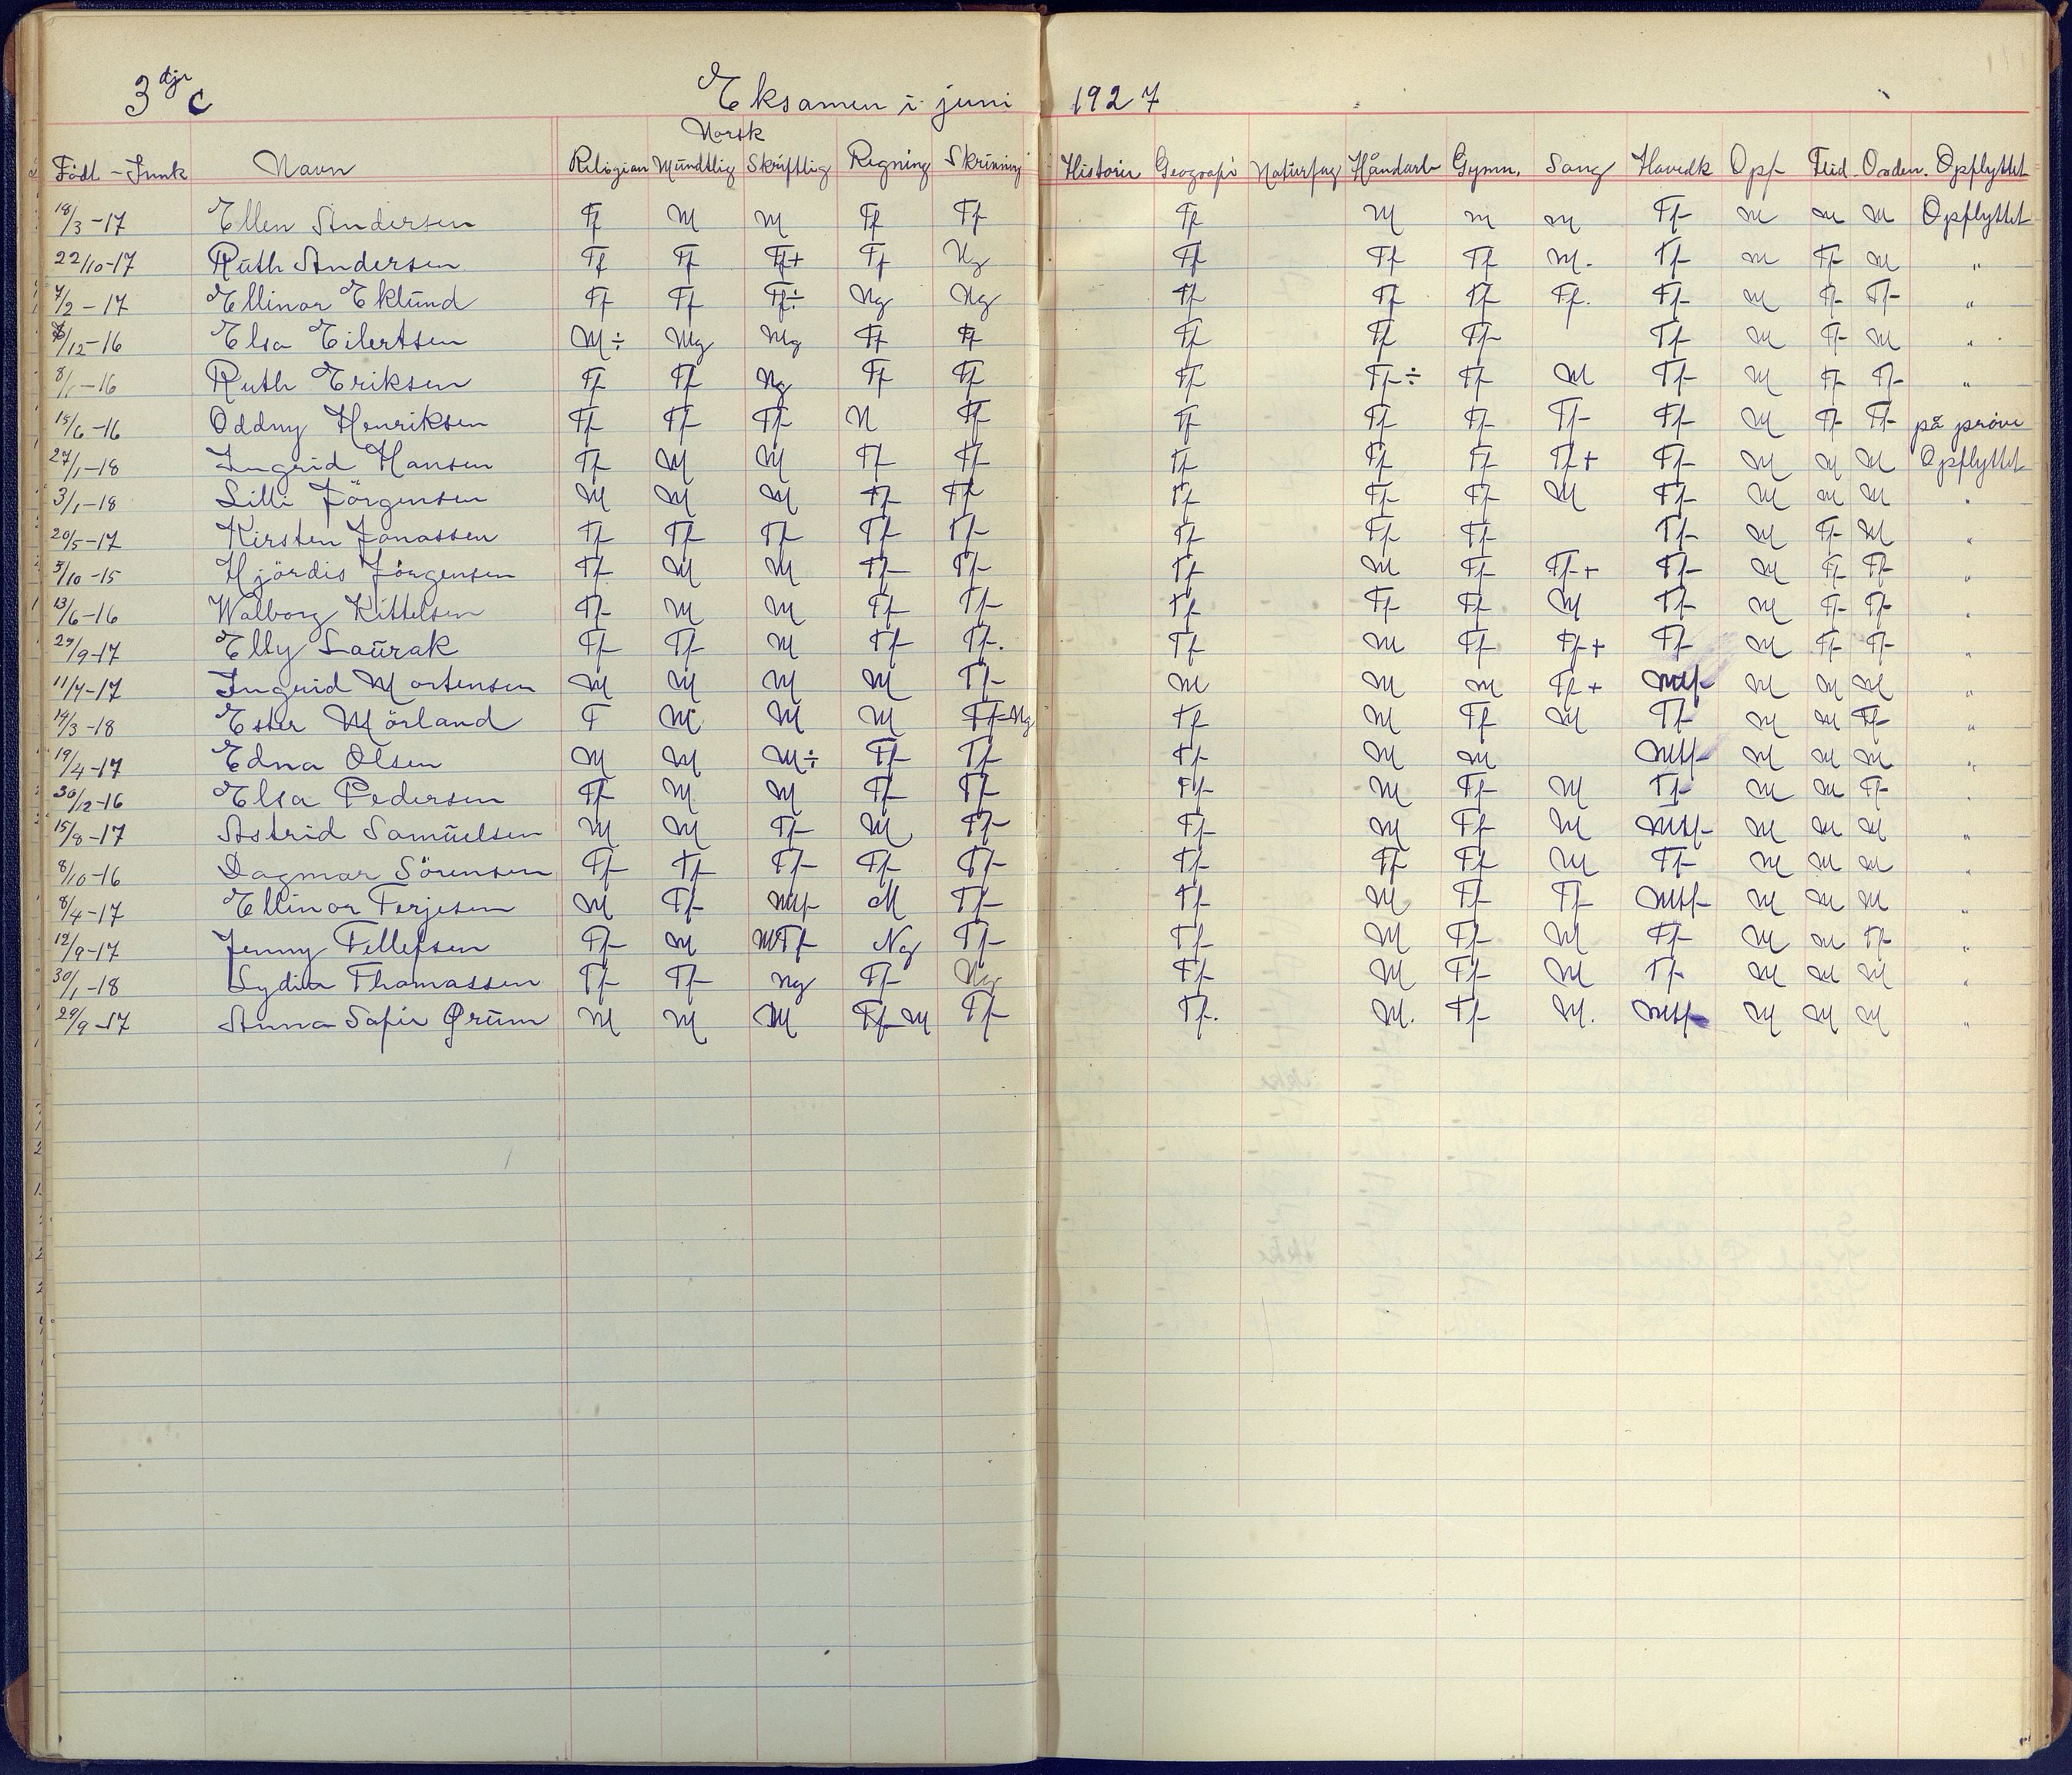 3dje C Eksamen i juni 1927
Norsk
Födt - Navn Religion Mündtlig Skriftlig Regning Skrivning Historie Geografi Naturfag Håndarb Gymn. Sang Hovedk Opf Flid Orden. Opflyttet
18/3-17 Ellen Andersen Tf M M Tf Tf Tf M M M Tf M M M Opflyttet
22/10-17 Rüth Andersen Tf Tf Tf+ Tf Ng Tf Tf Tf M. Tf M Tf M "
7/2-17 Ellinor Eklünd Tf Tf Tf÷ Ng Ng Tf Tf Tf Tf. Tf M Tf Tf "
/12-16 Elsa Eilertsen M÷ Mg Mg Tf Tf Tf Tf Tf Tf M Tf M "
8/1-16 Ruth Eriksen Tf Tf Ng Tf Tf Tf Tf÷ Tf M Tf M Tf Tf "
15/6-16 Oddny Henriksen Tf Tf Tf N Tf Tf Tf Tf Tf Tf M Tf Tf på pröve
27/1-18 Ingrid Hansen Tf M M Tf Tf Tf Tf Tf Tf+ Tf M M M Opflyttet
3/1-18 Lilli Jörgensen M M M Tf Tf Tf Tf Tf M Tf M M M "
20/5-17 Kirsten Jonassen Tf Tf Tf Tf Tf Tf Tf Tf Tf M Tf M "
3/10-15 Hjördis Jörgensen Tf M M Tf Tf Tf M Tf Tf+ Tf M Tf Tf "
13/6-16 Walborg Kittelsen Tf M M Tf Tf Tf Tf Tf M Tf M Tf Tf "
29/9-17 Elly Laürak Tf Tf M Tf Tf. Tf M Tf Tf+ Tf M Tf Tf "
11/4-17 Ingrid Mortensen M M M M Tf M M M Tf+ Mtf M M M "
14/3-18 Ester Mörland T M M M Tf-Ng Tf M Tf M Tf M M Tf "
19/4-17 Edna Olsen M M M÷ Tf Tf Tf M M Mtf M M M "
30/12-16 Elsa Pedersen Tf M M Tf Tf Tf M Tf M Tf M M Tf "
15/8-17 Astrid Samüelsen M M Tf M Tf Tf M Tf M Mtf M M M "
8/10-16 Dagmar Sörensen Tf Tf Tf Tf Tf Tf Tf Tf M Tf M M M "
8/4-17 Ellinor Terjesen M Tf Mtf M Tf Tf M Tf Tf Mtf M M M "
12/9-17 Jenny Tellefsen Tf M MTf Ng Tf Tf M Tf M Tf M M Tf "
30/1-18 Lydia Thomassen Tf Tf ng Tf Ng Tf M Tf M Tf M M M "
29/9-17 Anna Sofie Grüm M M M Tf-M Tf Tf. M. Tf M. Mtf M M M "